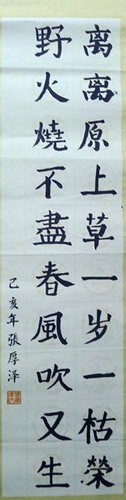 离离原上草一岁一枯榮
野火燒不盡春風吹又生
己亥年張厚泽